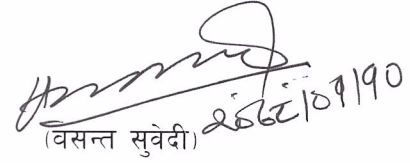 (वसन्त सुवेदी) २०६८/०१/१०